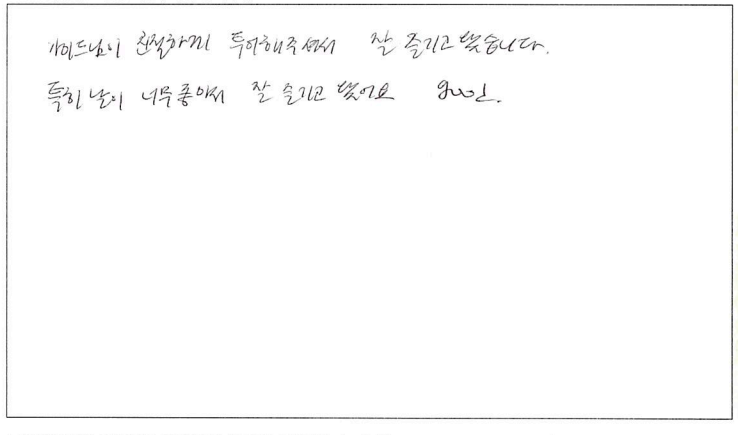 가이드님이 친절하게 투어해주셔서 잘 즐기고 왔습니다.
특히 날이 너무 좋아서 잘 즐기고 왔어요 good.